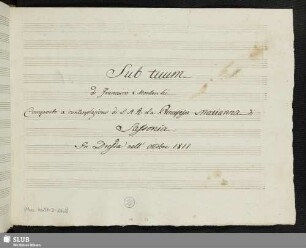 Sub tuum
di Francesco Morlacchi
Composto a contemplazione di S. A. R. La Principessa Marianna di
Sassonia
In Dresda nell' ottobre 1811
SLUB
Wir führen Wissen.